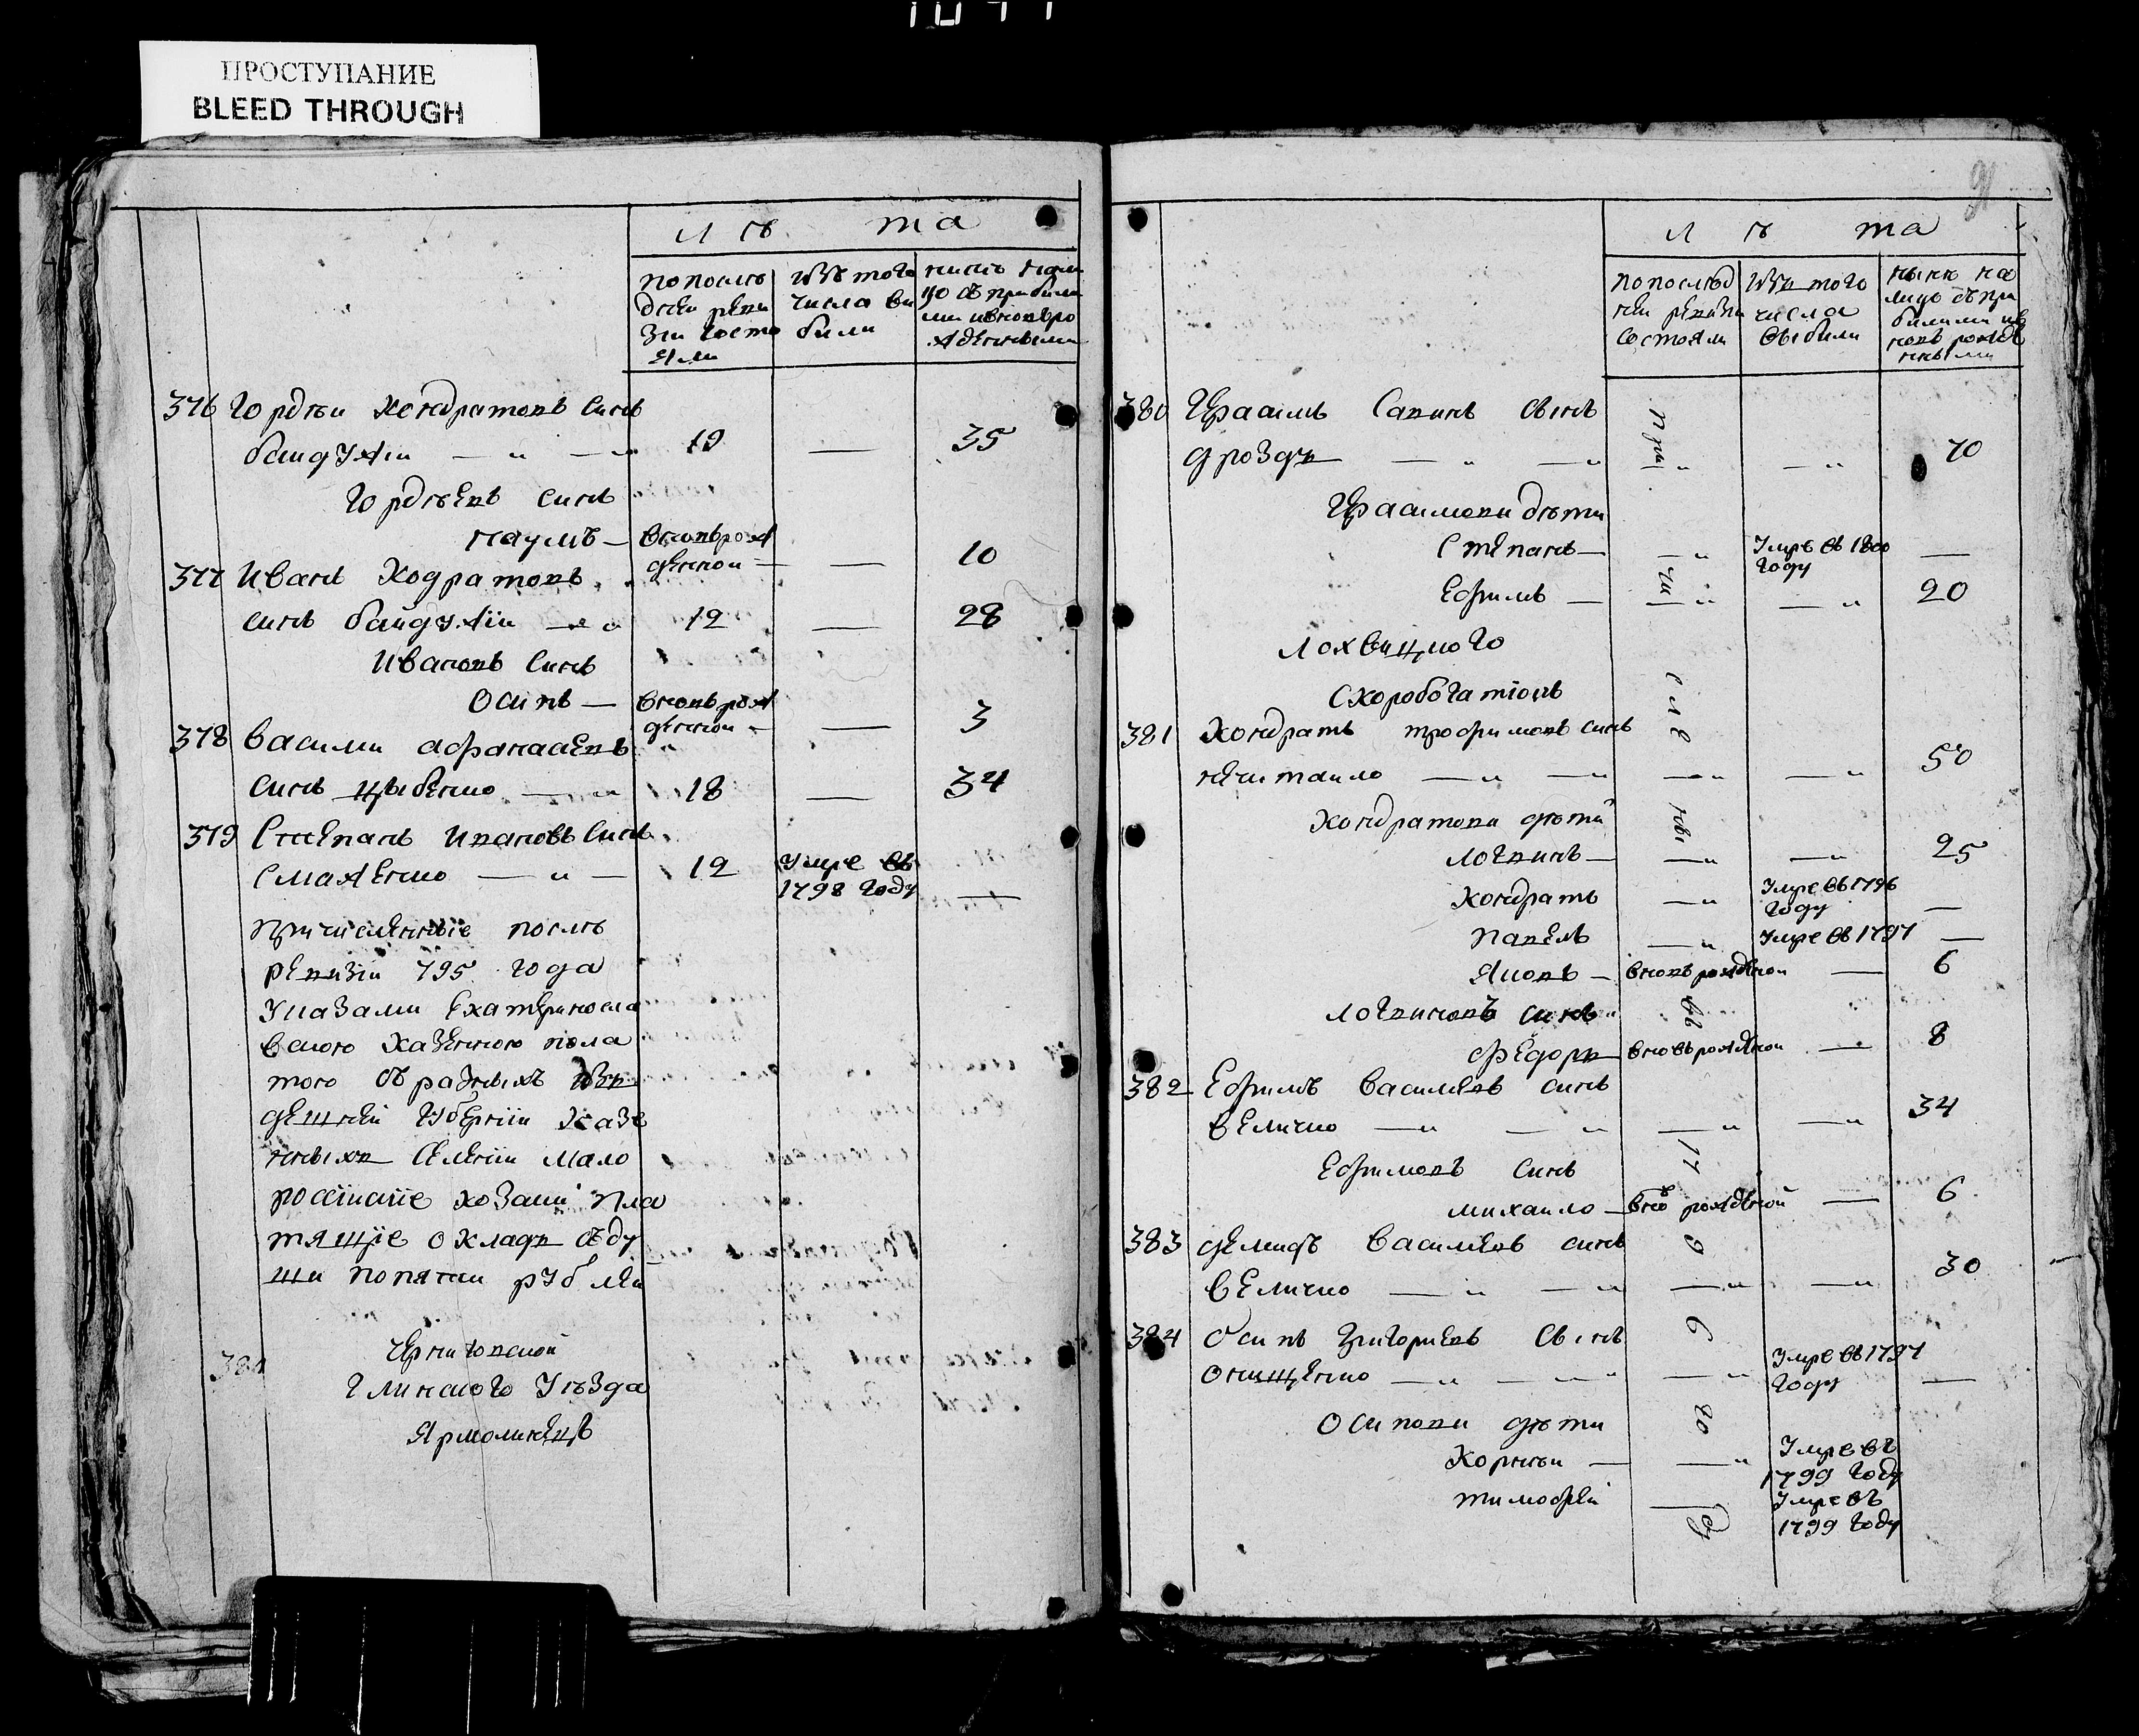 ПРОСТУПАНИЕ
BLEED THROUGH
Лѣта
попослѣ
дней реви
зіи состо
яли
изъ того
числа вы
были
нынѣ нали
цо съ прибыли
ми ивновьро
жденными
376 Гордѣи Кондратовъ синъ
байдужіи — 19 — 35
Гордѣевъ синъ
наумъ — вновьрож
денной — — 10
377 Иванъ Кодратовъ
синъ байдужіи — 12 — 28
Ивановъ синъ
Осипъ — вновьрож
денной — — 3
378 Василий афанасиевъ
синъ цыбенко — 18 — 34
379 Степанъ Ивановъ синъ
Смаженко — 12 Умре въ
1798 году —
Причисленные послѣ
ревизіи 795 года
указами Екатериносла
вского казенного пола
того съ разныхъ изъ
дешней губерніи казе
нныхъ селеніи мало
россійскіе козаки пла
тящіе окладъ съду
ши попяти рублей
Черниговской
Глинского уѣзда
Ярмолинецъ
Лѣта
попослѣд
ней ревизіи
состояли
изъ того
числа
выбыли
нынѣ на
лицо съпри
былыми ив
новь рожде
нными
380 Герасимъ Савинъ сынъ
дроздъ — — 70
Герасимови дѣти
Степанъ — Умре въ 1800
году —
Ефимъ — — 20
Лохвицкого
Скоробогатковъ
381 Кондратъ трофимовъ синъ
нечитайло — — 50
Кондратови дѣти
Логвинъ — — 25
Кондратъ — Умре въ 1796
году —
Павелъ — Умре въ 1797 —
Яковъ — вновьрожденной — 6
Логвиновъ синъ
Федоръ — вновьрожденной — 8
382 Ефимъ Василіевъ синъ
величко — — 34
Ефимовъ синъ
михайло — вновь рожденной — 6
383 демидъ Василіевъ синъ
величко — — 30
384 Осипъ Григориевъ сынъ
онищенко — Умре въ 1797
году —
Осипови дѣти
Корнѣи — Умре въ
1799 году
тимофей — Умре въ
1799 году